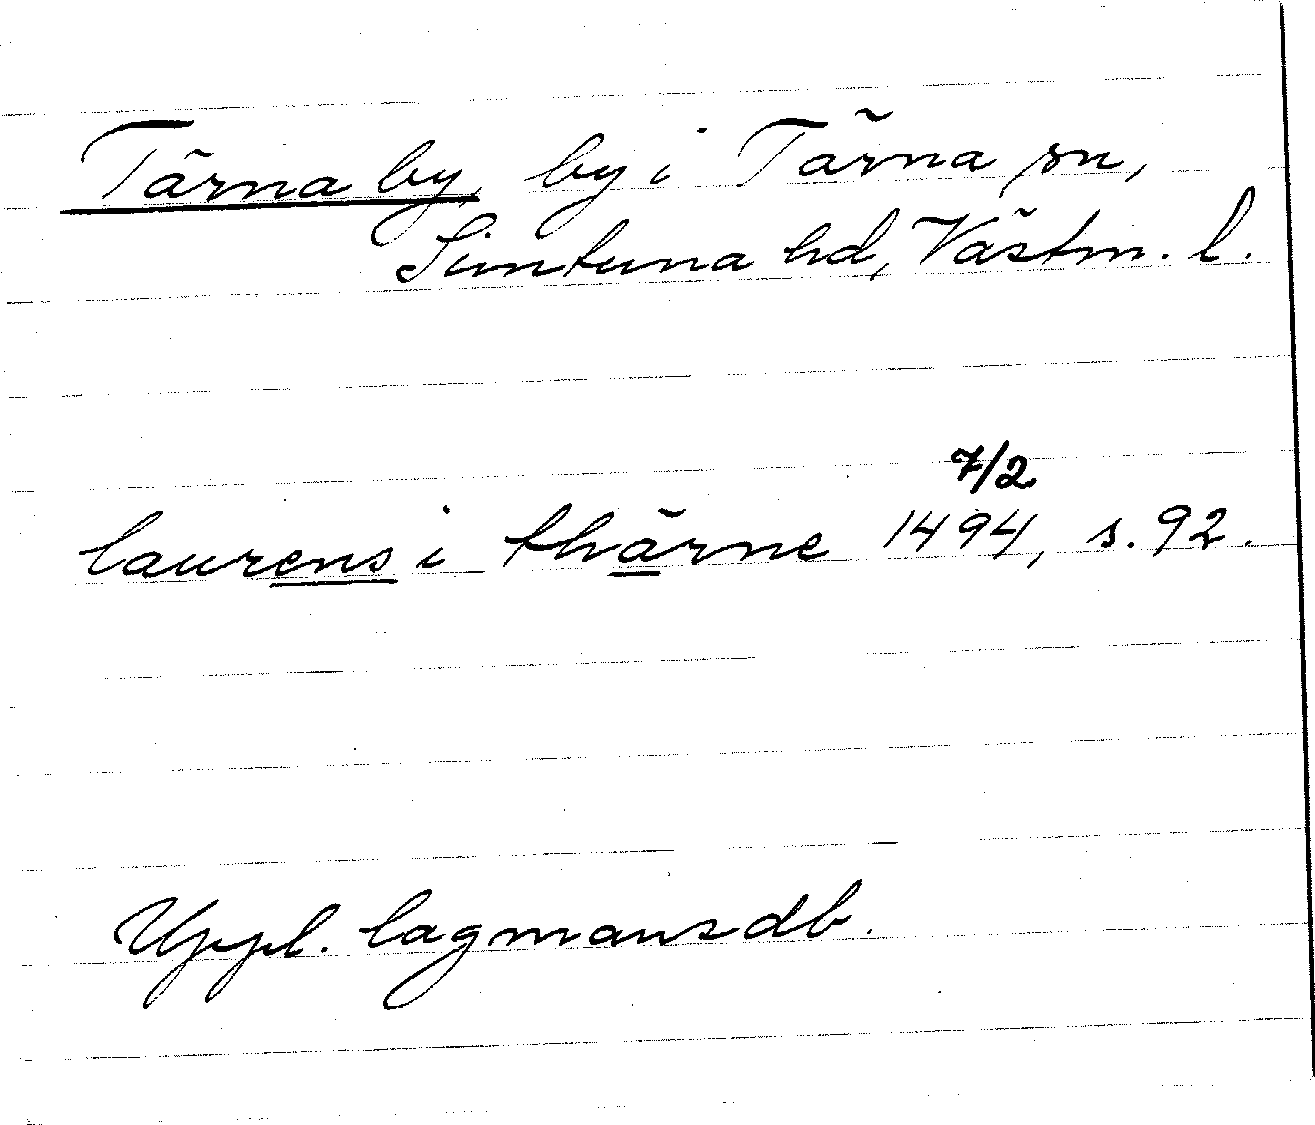 Tärna by, by i Tärna sn,
Simtuna hd, Västm. l.
7/2
laurens i thärne 1494, s. 92.
Uppl. lagmansdb.